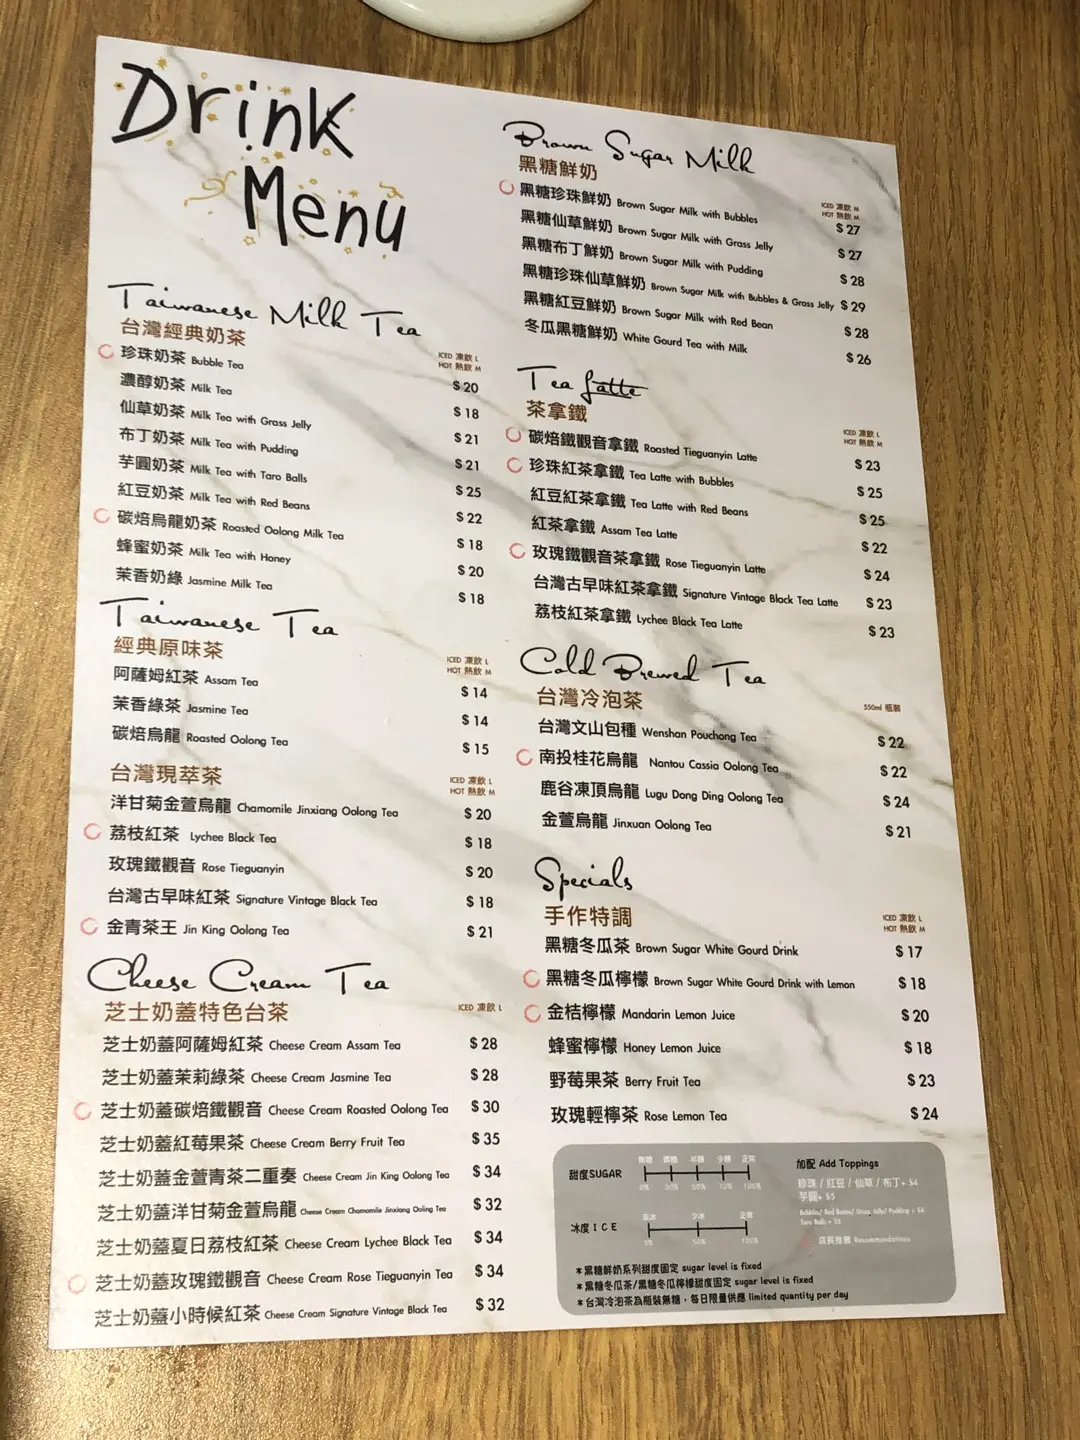 Drink
Menu
Taiwanese Milk Tea
台灣經典奶茶
ICED 凍飲 L
HOT 熱飲 M
珍珠奶茶 Bubble Tea $20
濃醇奶茶 Milk Tea $18
仙草奶茶 Milk Tea with Grass Jelly $21
布丁奶茶 Milk Tea with Pudding $21
芋圓奶茶 Milk Tea with Taro Balls $25
紅豆奶茶 Milk Tea with Red Beans $22
碳焙烏龍奶茶 Roasted Oolong Milk Tea $18
蜂蜜奶茶 Milk Tea with Honey $20
茉香奶綠 Jasmine Milk Tea $18
Taiwanese Tea
經典原味茶
ICED 凍飲 L
HOT 熱飲 M
阿薩姆紅茶 Assam Tea $14
茉香綠茶 Jasmine Tea $14
碳焙烏龍 Roasted Oolong Tea $15
台灣現萃茶
ICED 凍飲 L
HOT 熱飲 M
洋甘菊金萱烏龍 Chamomile Jinxiang Oolong Tea $20
荔枝紅茶 Lychee Black Tea $18
玫瑰鐵觀音 Rose Tieguanyin $20
台灣古早味紅茶 Signature Vintage Black Tea $18
金青茶王 Jin King Oolong Tea $21
Cheese Cream Tea
芝士奶蓋特色台茶
ICED 凍飲 L
芝士奶蓋阿薩姆紅茶 Cheese Cream Assam Tea $28
芝士奶蓋茉莉綠茶 Cheese Cream Jasmine Tea $28
芝士奶蓋碳焙鐵觀音 Cheese Cream Roasted Oolong Tea $30
芝士奶蓋紅莓果茶 Cheese Cream Berry Fruit Tea $35
芝士奶蓋金萱青茶二重奏 Cheese Cream Jin King Oolong Tea $34
芝士奶蓋洋甘菊金萱烏龍 Cheese Cream Chamomile Jinxiang Ooling Tea $32
芝士奶蓋夏日荔枝紅茶 Cheese Cream Lychee Black Tea $34
芝士奶蓋玫瑰鐵觀音 Cheese Cream Rose Tieguanyin Tea $34
芝士奶蓋小時候紅茶 Cheese Cream Signature Vintage Black Tea $32
Brown Sugar Milk
黑糖鮮奶
ICED 凍飲 M
HOT 熱飲 M
黑糖珍珠鮮奶 Brown Sugar Milk with Bubbles $27
黑糖仙草鮮奶 Brown Sugar Milk with Grass Jelly $27
黑糖布丁鮮奶 Brown Sugar Milk with Pudding $28
黑糖珍珠仙草鮮奶 Brown Sugar Milk with Bubbles & Grass Jelly $29
黑糖紅豆鮮奶 Brown Sugar Milk with Red Bean $28
冬瓜黑糖鮮奶 White Gourd Tea with Milk $26
Tea Latte
茶拿鐵
ICED 凍飲 L
HOT 熱飲 M
碳焙鐵觀音拿鐵 Roasted Tieguanyin Latte $23
珍珠紅茶拿鐵 Tea Latte with Bubbles $25
紅豆紅茶拿鐵 Tea Latte with Red Beans $25
紅茶拿鐵 Assam Tea Latte $22
玫瑰鐵觀音茶拿鐵 Rose Tieguanyin Latte $24
台灣古早味紅茶拿鐵 Signature Vintage Black Tea Latte $23
荔枝紅茶拿鐵 Lychee Black Tea Latte $23
Cold Brewed Tea
台灣冷泡茶
550ml 瓶裝
台灣文山包種 Wenshan Pouchong Tea $22
南投桂花烏龍 Nantou Cassia Oolong Tea $22
鹿谷凍頂烏龍 Lugu Dong Ding Oolong Tea $24
金萱烏龍 Jinxuan Oolong Tea $21
Specials
手作特調
ICED 凍飲 L
HOT 熱飲 M
黑糖冬瓜茶 Brown Sugar White Gourd Drink $17
黑糖冬瓜檸檬 Brown Sugar White Gourd Drink with Lemon $18
金桔檸檬 Mandarin Lemon Juice $20
蜂蜜檸檬 Honey Lemon Juice $18
野莓果茶 Berry Fruit Tea $23
玫瑰輕檸茶 Rose Lemon Tea $24
甜度SUGAR
無糖 微糖 半糖 少糖 正常
0% 30% 50% 70% 100%
冰度 ICE
走冰 少冰 正常
0% 50% 100%
加配 Add Toppings
珍珠 / 紅豆 / 仙草 / 布丁+ $4
芋圓+ $5
Bubbles/ Red Beans/ Grass Jelly/ Pudding + $4
Taro Balls + $5
店長推薦 Recommendations
*黑糖鮮奶系列甜度固定 sugar level is fixed
*黑糖冬瓜茶/黑糖冬瓜檸檬甜度固定 sugar level is fixed
*台灣冷泡茶為瓶裝無糖，每日限量供應 limited quantity per day